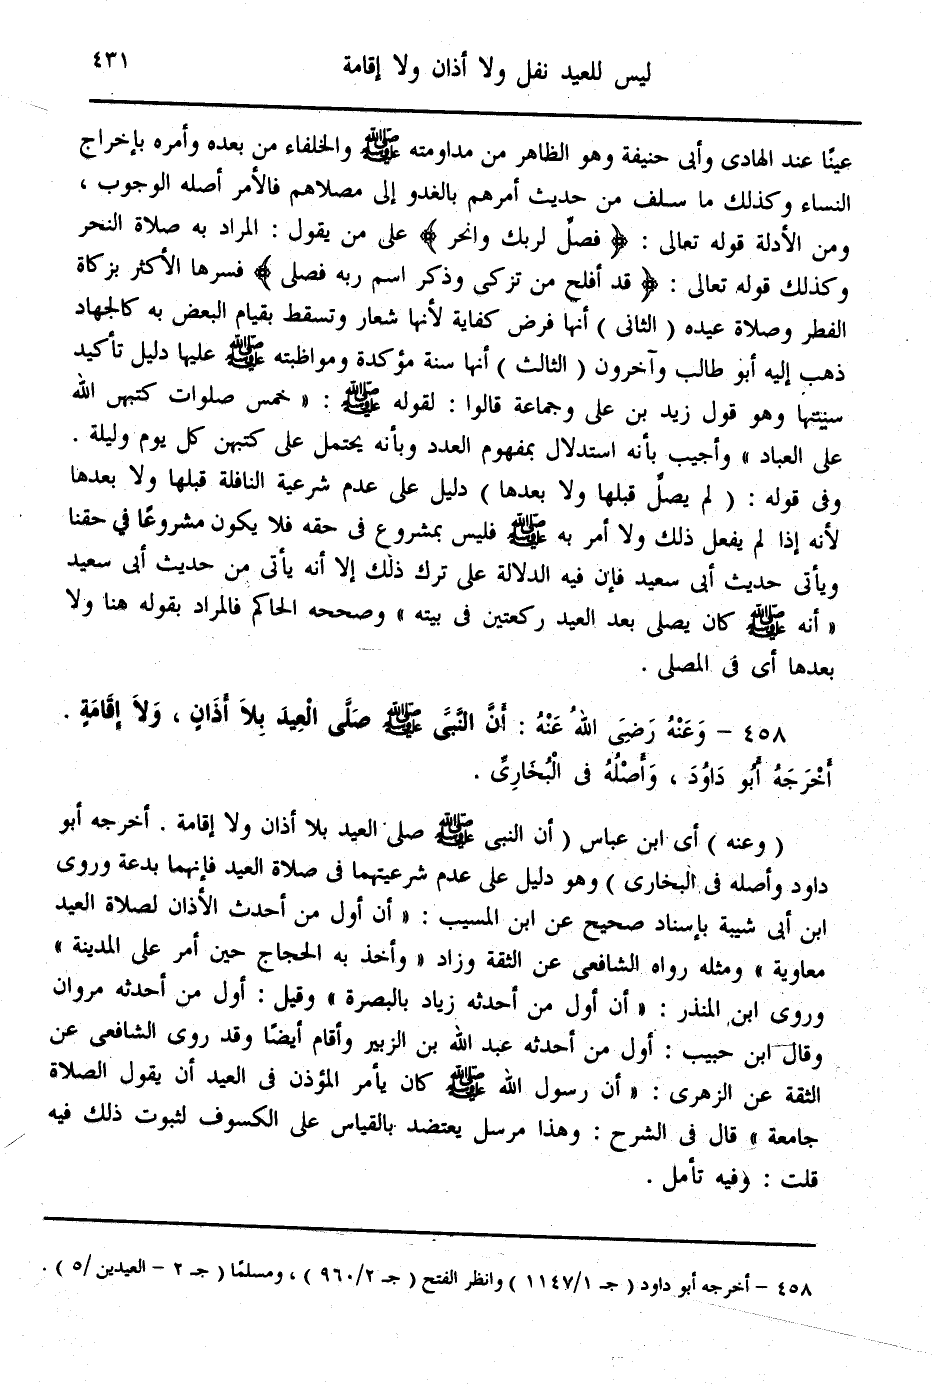 ليس للعيد نفل ولا أذان ولا إقامة ٤٣١
عينًا عند الهادى وأبى حنيفة وهو الظاهر من مداومته ﷺ والخلفاء من بعده وأمره بإخراج
النساء وكذلك ما سلف من حديث أمرهم بالغدو إلى مصلاهم فالأمر أصله الوجوب ،
ومن الأدلة قوله تعالى : ﴿ فصلِّ لربك وانحر ﴾ على من يقول : المراد به صلاة النحر
وكذلك قوله تعالى : ﴿ قد أفلح من تزكى وذكر اسم ربه فصلى ﴾ فسرها الأكثر بزكاة
الفطر وصلاة عيده ( الثانى ) أنها فرض كفاية لأنها شعار وتسقط بقيام البعض به كالجهاد
ذهب إليه أبو طالب وآخرون ( الثالث ) أنها سنة مؤكدة ومواظبته ﷺ عليها دليل تأكيد
سنيتها وهو قول زيد بن على وجماعة قالوا : لقوله ﷺ : « خمس صلوات كتبهن الله
على العباد » وأجيب بأنه استدلال بمفهوم العدد وبأنه يحتمل على كتبهن كل يوم وليلة .
وفى قوله : ( لم يصلِّ قبلها ولا بعدها ) دليل على عدم شرعية النافلة قبلها ولا بعدها
لأنه إذا لم يفعل ذلك ولا أمر به ﷺ فليس بمشروع فى حقه فلا يكون مشروعًا في حقنا
ويأتى حديث أبى سعيد فإن فيه الدلالة على ترك ذلك إلا أنه يأتى من حديث أبى سعيد
« أنه ﷺ كان يصلى بعد العيد ركعتين فى بيته » وصححه الحاكم فالمراد بقوله هنا ولا
بعدها أى فى المصلى .
٤٥٨ – وَعَنْهُ رَضِىَ اللهُ عَنْهُ : أَنَّ النَّبِىَّ ﷺ صَلَّى الْعِيدَ بِلاَ أَذَانٍ ، وَلاَ إِقَامَةٍ .
أَخْرَجَهُ أَبُو دَاوُدَ ، وَأَصْلُهُ فى الْبُخَارِىِّ .
( وعنه ) أى ابن عباس ( أن النبى ﷺ صلى العيد بلا أذان ولا إقامة . أخرجه أبو
داود وأصله فى البخارى ) وهو دليل على عدم شرعيتهما فى صلاة العيد فإنهما بدعة وروى
ابن أبى شيبة بإسناد صحيح عن ابن المسيب : « أن أول من أحدث الأذان لصلاة العيد
معاوية » ومثله رواه الشافعى عن الثقة وزاد « وأخذ به الحجاج حين أمر على المدينة »
وروى ابن المنذر : « أن أول من أحدثه زياد بالبصرة » وقيل : أول من أحدثه مروان
وقال ابن حبيب : أول من أحدثه عبد الله بن الزبير وأقام أيضًا وقد روى الشافعى عن
الثقة عن الزهرى : « أن رسول الله ﷺ كان يأمر المؤذن فى العيد أن يقول الصلاة
جامعة » قال فى الشرح : وهذا مرسل يعتضد بالقياس على الكسوف لثبوت ذلك فيه
قلت : وفيه تأمل .
٤٥٨ – أخرجه أبو داود ( جـ ١١٤٧/١ ) وانظر الفتح ( جـ ٩٦٠/٢ ) ، ومسلمًا ( جـ ٢ – العيدين /٥ ) .